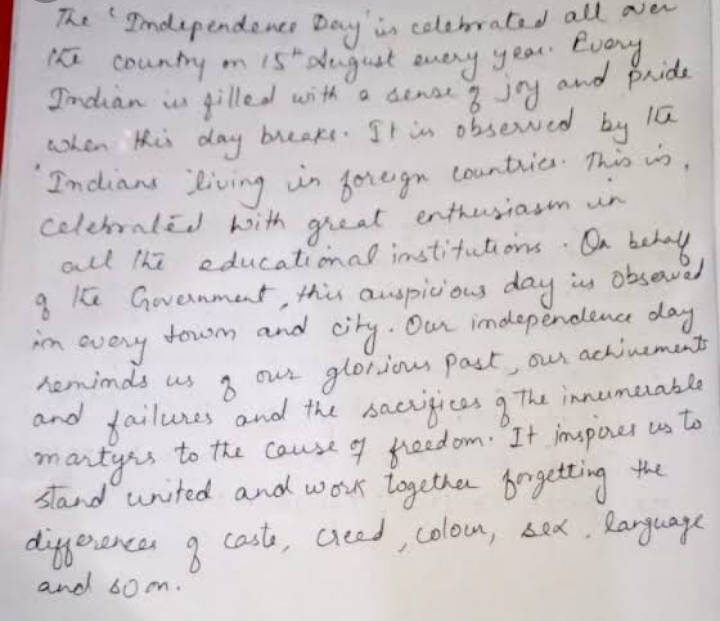 The 'Independence Day' is celebrated all over
the country on 15th August every year. Every
Indian is filled with a sense of joy and pride
when this day breaks. It is observed by the
'Indians living in foreign countries. This is,
celebrated with great enthusiasm in
all the educational institutions. On behalf
of the Government, this auspicious day is observed
in every town and city. Our independence day
reminds us of our glorious past, our achivements
and failures and the sacrifices of the innumerable
martyrs to the cause of freedom. It inspires us to
stand united and work together forgetting the
differences of caste, creed, colour, sex, language
and so on.